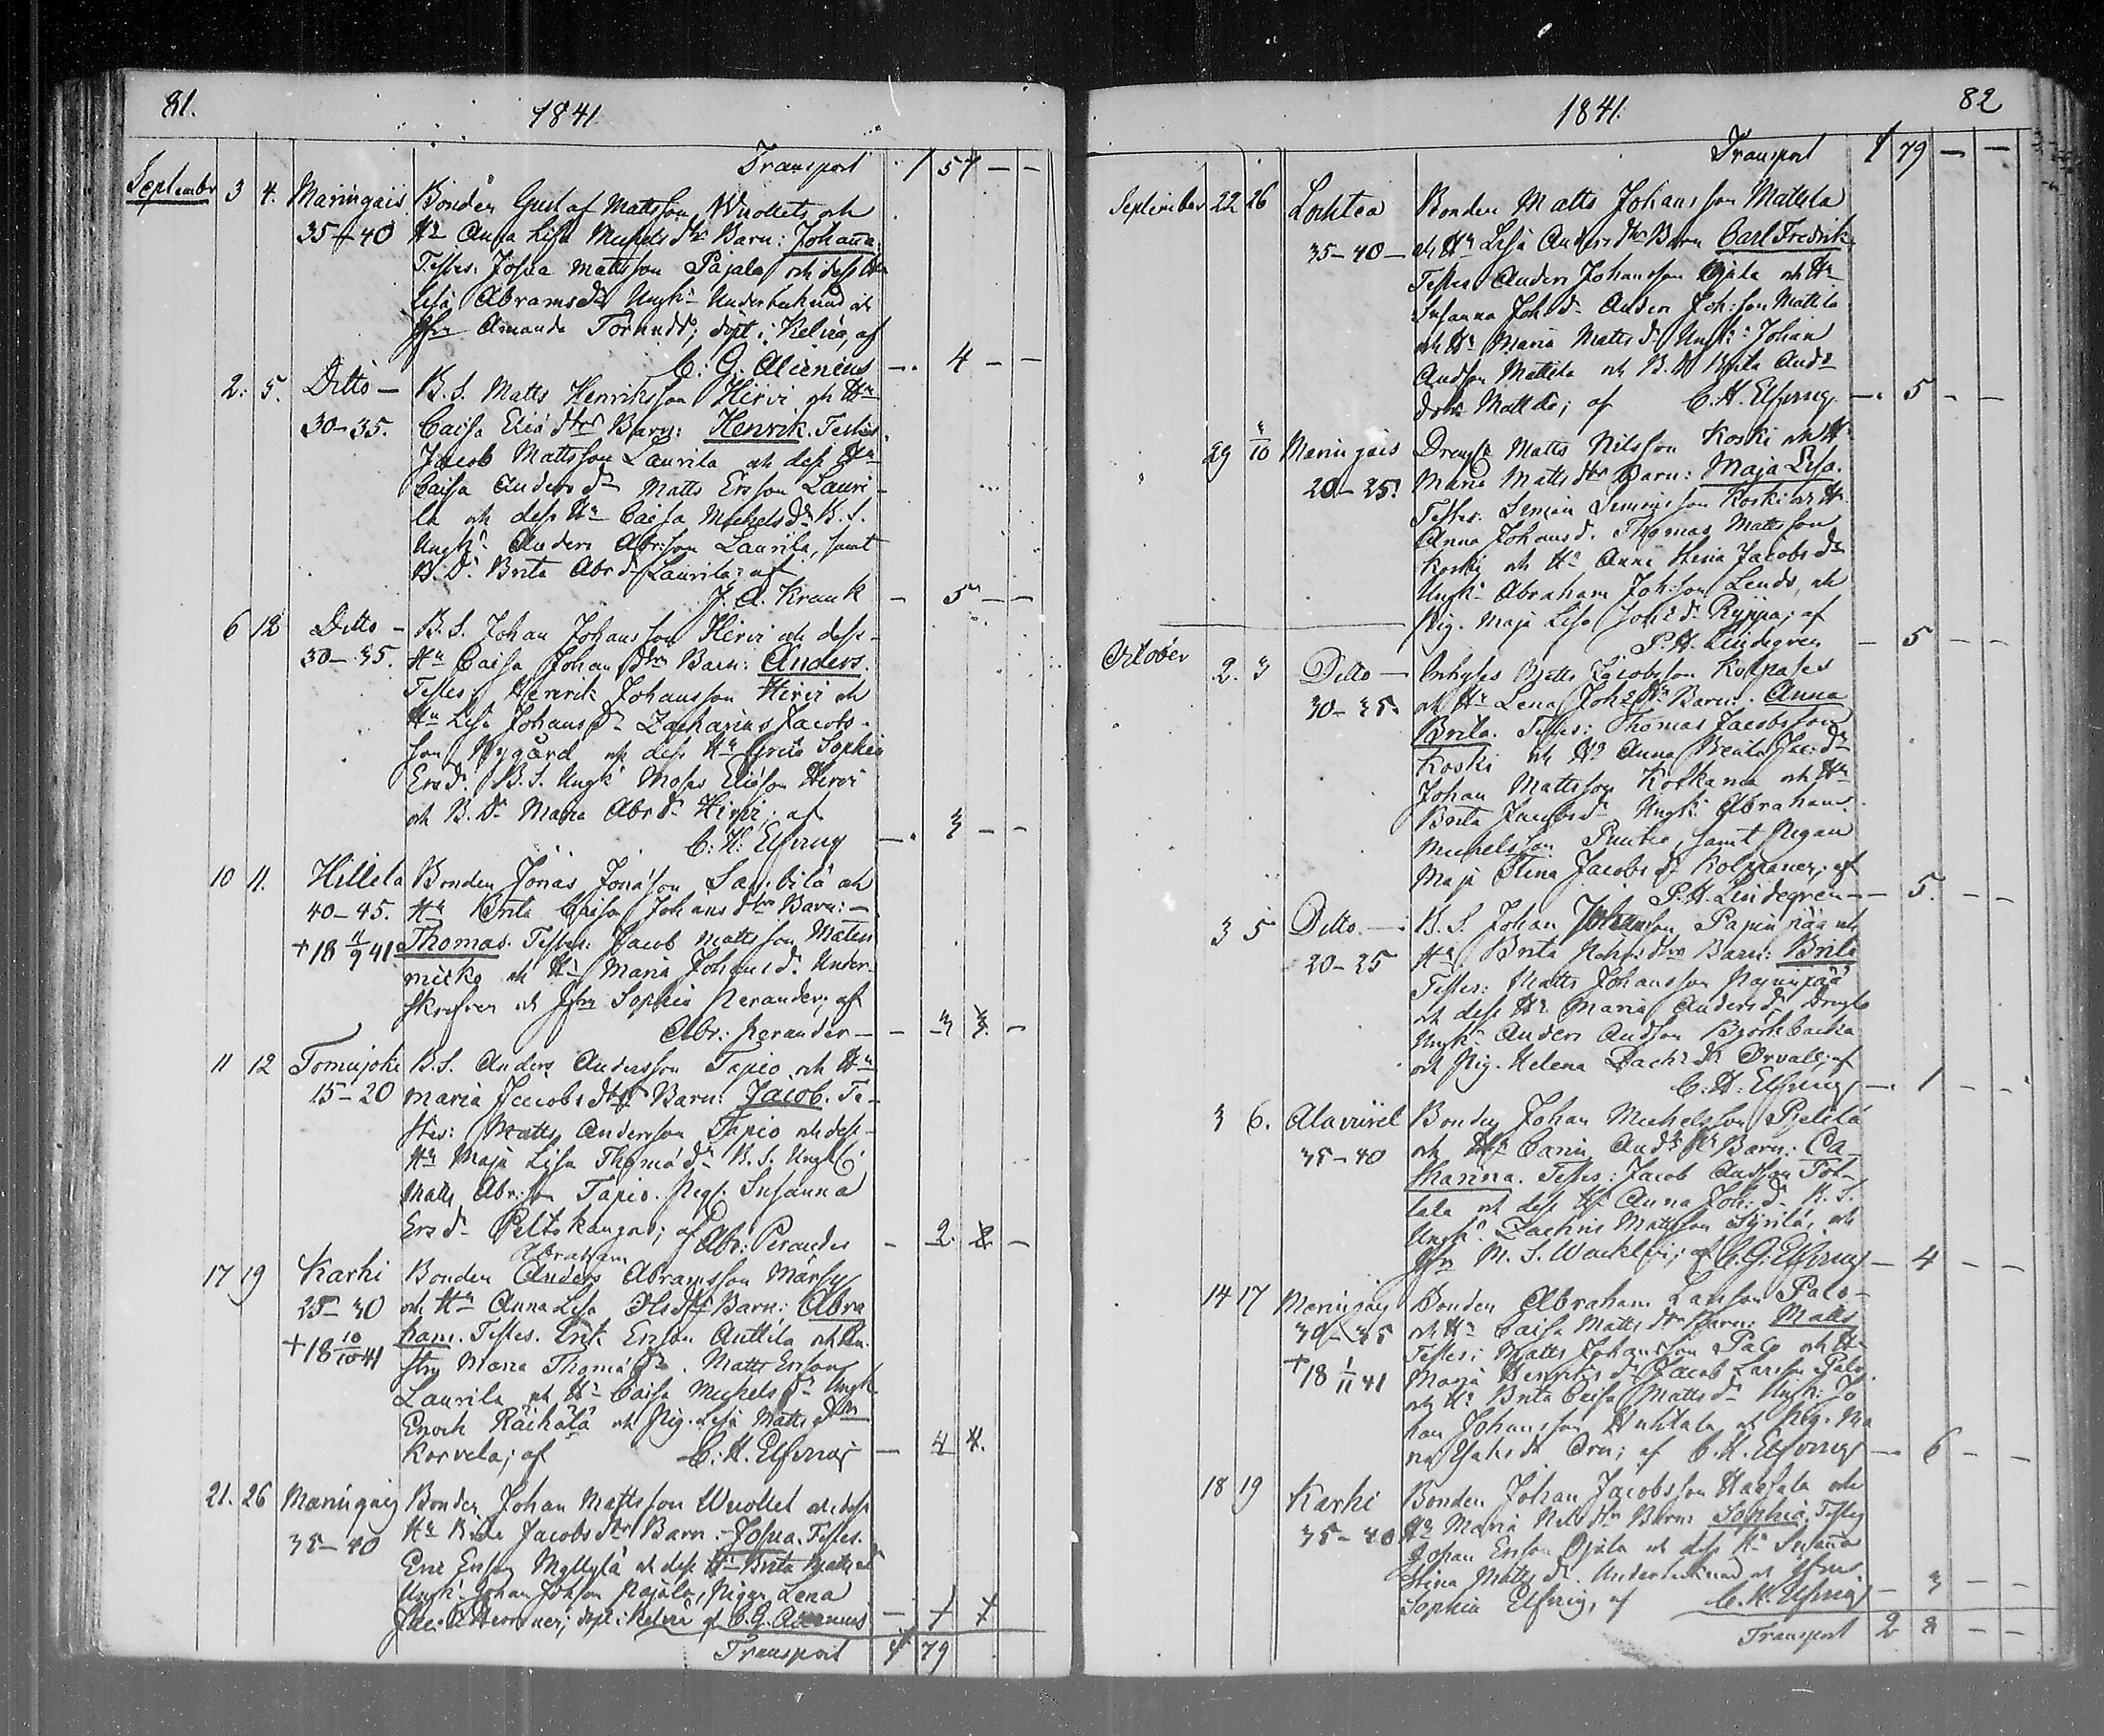 81.
1841
Transport 1 57 - -
September 3 4. Maringais Bonden Gustaf Mattsson Wuollets och
35-40 Hu Anna Lisa Michelsdtr Barn: Johanna.
Testes: Josua Mattsson Pajala och dess Hu
Lisa Abramsdr Ungk: Undertecknad och
Jfru Amanda ; döpt i Kelviå, af
C. G. Alcenius -. 4 - -
2. 5. Ditto - B. S. Matts Henriksson Hirvi och Hu
30-35. Caisa Eliæ dtrs Barn: Henrik. Testes:
Jacob Mattsson Laurila och dess Hu
Caisa Andersdr Matts Ersson Lauri-
la och dess Hu Caisa Michelsdr B. S.
Ungk: Anders Abr:son Laurila, samt
B. D. Brita Abrdr Laurila; af
J. A. Krank - 5 - -
6 12 Ditto - B. S. Johan Johansson Hirvi och dess
30-35. Hu Caisa Johansdtrs Barn: Anders.
Testes: Henrik Johansson Hirvi och
Hu Lisa Johansdr Zacharias Jacobs-
son Nygård och dess Hu Greta Sophia
Ersdr. B. S. Ungk: Moses Eliæson Hirvi
och B. Dr Maria Abrdr Hirvi; af
C. H. Elfving -. 3 - -
10 11. Hillilä Bonden Jonas Jonæson och
40-45. Hu Brita Caisa Johansdtrs Barn: -
+18 11/9 41. Thomas. Testes: Jacob Mattsson
och Hu Maria Johansdr. Under-
skrefven och Jfru Sophia Perander; af
Abr: Perander - - 3 3. -
11 12 Tomujoki B. S. Anders Andersson Tapio och Hu
15-20 Maria Jacobsdtrs Barn: Jacob. Te-
stes: Matts Andersson Tapio och dess
Hu Maja Lisa Thomædr B. S. Ungk:
Matts Abr:son Tapio. Pig: Susanna
Ersdr Peltokangas; af Abr: Perander - 2. 2 -
Abraham
17 19 Karhi Bonden Anders Abramsson Märsy
25-30 och Hu Anna Lisa Olsdtrs Barn: Abra
+18 10/10 41 ham. Testes. Erik Ersson Anttila och Hu-
stru Maria Thomædr. Matts Ersson
Laurila och Hu Caisa Michelsdr Ungk.
Enoch Räihälä och Pig. Lisa Mattsdr
Korvela; af C. H. Elfving - 4 4.
21. 26 Maringais Bonden Johan Mattsson Wuollet och dess
35-40 Hu Brita Jacobsdtrs Barn - Josua. Testes.
Eric Ersson Myllylä och dess Hu Brita Mattsdr
Ungk: Johan Johsson Pajala, Pigan Lena
Jac: dr ; döpt i Kelviå af C. G. Alcenius -
Transport 1 79
1841.
82
Transport 1 79 - -
September 22 26 Lochtea Bonden Matts Johansson Mattila
35-40 - och Hu Lisa Andersdtrs Barn Carl Fredrik.
Testes Anders Johansson Ojala och Hu
Susanna Johdr Anders Joh:son Mattila
och Hu Maria Mattsdr Ungk: Johan
Andsson Mattila och B. D. Brita Anders
dotter Mattila; af C. H. Elfving. -. 5 - -
29 4/10 Maringais Dreng Matts Nilsson Koski och Hu
20-25. Maria Mattsdtrs Barn: Maja Lisa.
Testes. Simon Simonsson Koski och Hu
Anna Johansdr. Thomas Mattsson
Koski och Hu Anna Stina Jacobsdr
Ungk: Abraham Joh:son Lendo, och
Pig. Maja Lisa Joh:dr Ryppa; af
P. H. Lindegren - 5 - -
October 2. 3 Ditto - Inhyses Matts Jacobsson
30-35. och Hu Lena Johsdtrs Barn: Anna
Brita. Testes: Thomas Jacobsson
Koski och Hu Anna Beata Jac:dr
Johan Mattsson och Hu
Brita Jacobsdr Ungk: Abraham
Michelsson , samt Pigan
Maja Stina Jacobsdr ; af
P. H. Lindegren - - 5. - -
3 5 Ditto. - B. S. Johan Johansson och
20-25 Hu Brita dtrs Barn: Brita
Testes: Matts Johansson
och dess Hu Maria Andersdr Dreng
Ungk: Anders Andsson Björkbacka
och Pig. Helena Zach:dr Orvall; af
C. H. Elfving -. 1 - -
3 6. Alaviirret Bonden Johan Michelsson
35-40 och Hu Carin Andsdtrs Barn: Ca-
tharina. Testes: Jacob Andsson
och dess Hu Anna Joh:dr B. S.
Ungk: Zachris Mattsson , och
Jfru M. S. ; af C. G. Elfving - 4 - -
14 17 Maringais Bonden Abraham Larsson Palo-
30-35 och Hu Caisa Mattsdtrs Barn: Matts
+18 1/11 41 Testes: Matts Johansson Palo och Hu
Maria Henriksdr Jacob Larsson Palo
och Hu Brita Caisa Mattsdr Ungk: Jo
han Johansson Huhtala och Pig. Ma
ria dr Orre; af C. H. Elfving - 6 - -
18 19 Karhi Bonden Johan Jacobsson Haapala och
35-40 Hu Maria Nilsdtrs Barn: Sophia. Testes
Johan Ersson Ojala och dess Hu Susanna
Stina Mattsdr. Undertecknad och Jfru
Sophia Elfving, af C. H. Elfving - 3 - -
Transport 2 8 - -